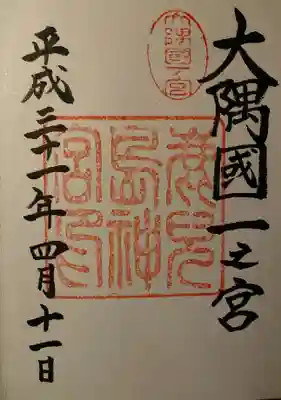 大隅國一之宮
大隅國一宮
鹿兒島神宮印
平成三十一年四月十一日